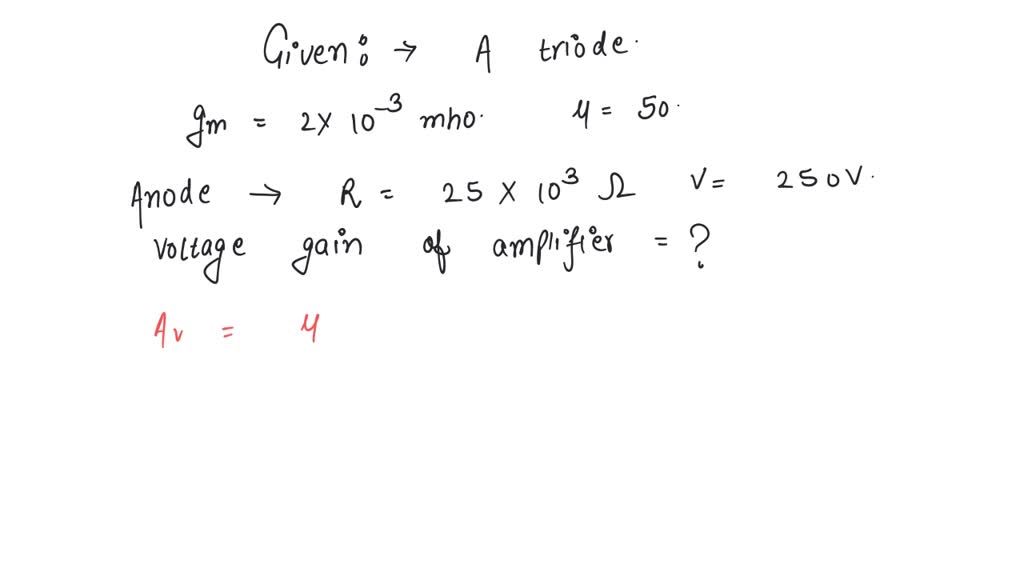 Given: → A triode.
gm = 2 X 10^-3 mho. μ = 50.
Anode → R = 25 X 10^3 Ω V = 250V.
Voltage gain of amplifier = ?
Av = μ